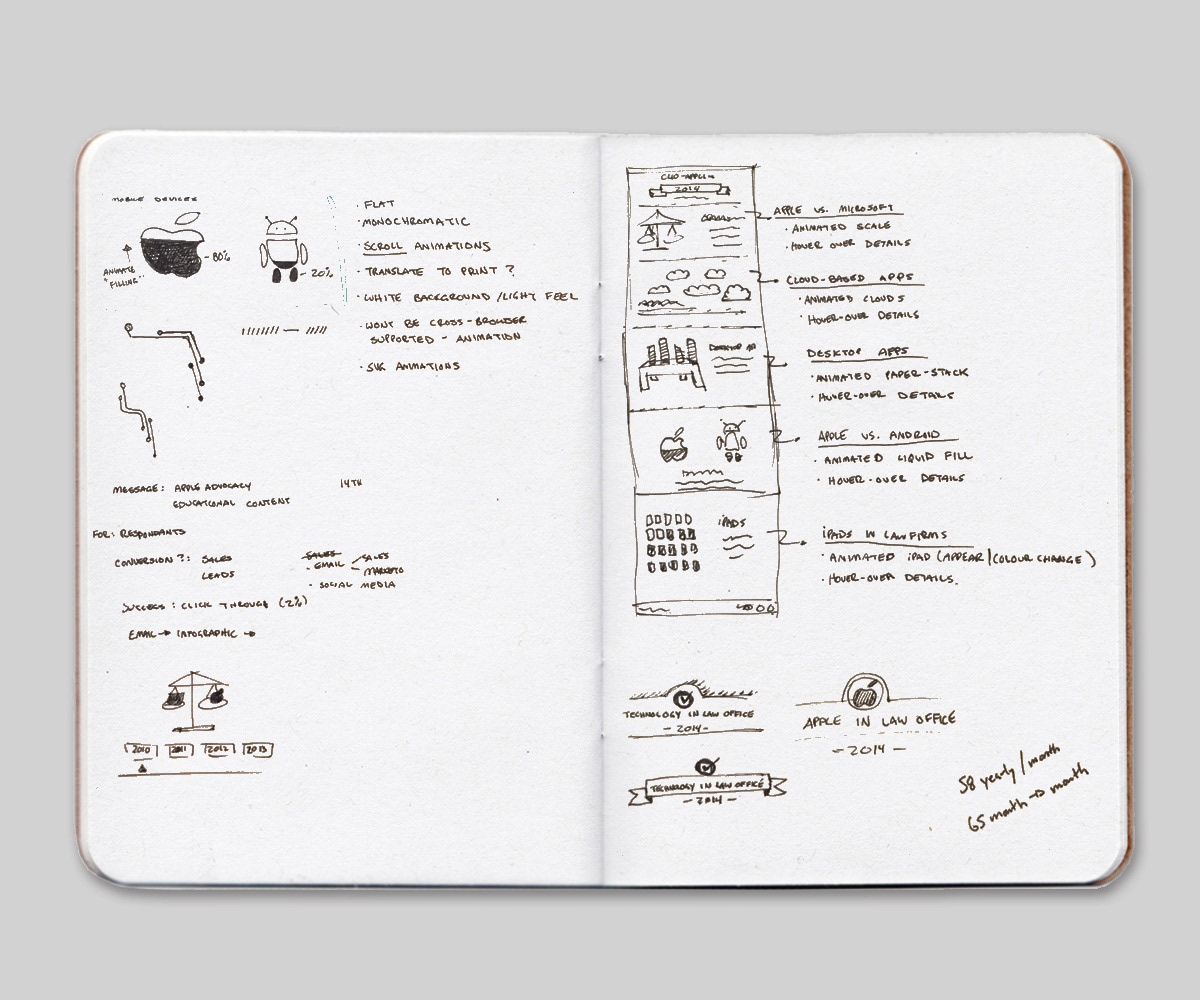 MOBILE DEVICES
80%
20%
ANIMATE
"FILLING"
· FLAT
· MONOCHROMATIC
· SCROLL ANIMATIONS
· TRANSLATE TO PRINT?
· WHITE BACKGROUND/LIGHT FEEL
· WONT BE CROSS-BROWSER
SUPPORTED - ANIMATION
· SVG ANIMATIONS
MESSAGE: APPLE ADVOCACY
EDUCATIONAL CONTENT
14TH
FOR: RESPONDANTS
CONVERSION?: SALES
LEADS
SALES
· GMAIL
SALES
MARKETO
· SOCIAL MEDIA
SUCCESS: CLICK THROUGH (2%)
EMAIL → INFOGRAPHIC →
2010 2011 2012 2013
2014
DESKTOP AP
iPADS
APPLE VS. MICROSOFT
· ANIMATED SCALE
· HOVER OVER DETAILS
CLOUD-BASED APPS
· ANIMATED CLOUDS
· HOVER-OVER DETAILS
DESKTOP APPS
· ANIMATED PAPER-STACK
· HOVER-OVER DETAILS
APPLE VS. ANDROID
· ANIMATED LIQUID FILL
· HOVER-OVER DETAILS
iPADS IN LAWFIRMS
· ANIMATED iPAD (APPEAR/COLOUR CHANGE)
· HOVER-OVER DETAILS.
TECHNOLOGY IN LAW OFFICE
- 2014 -
APPLE IN LAW OFFICE
- 2014 -
TECHNOLOGY IN LAW OFFICE
- 2014 -
58 yearly/month
65 month to month